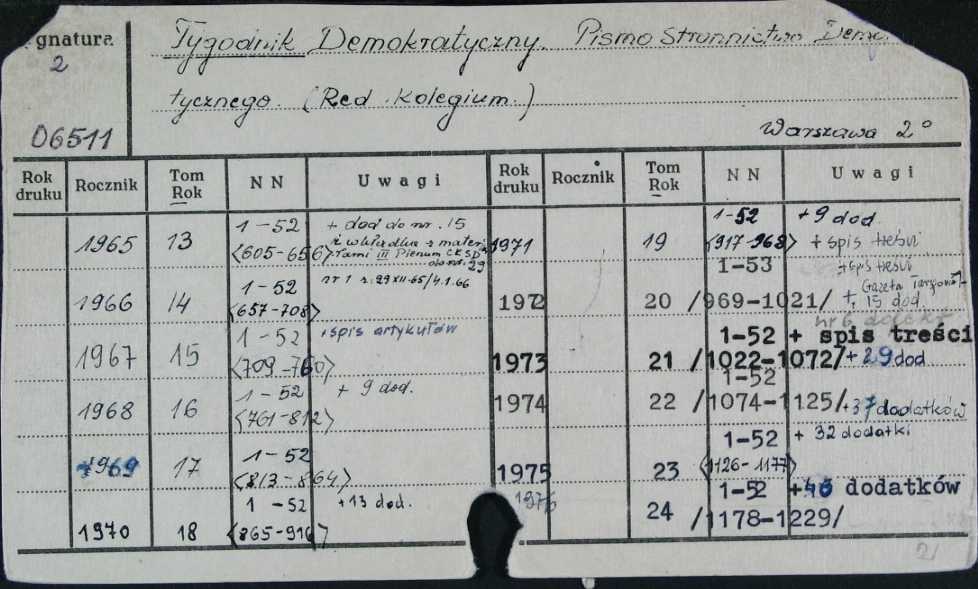 gnatura
2
06511
Tygodnik Demokratyczny. Pismo Stronnictwa Demo
tycznego. (Red. Kolegium.)
Warszawa 2°
Rok druku Rocznik Tom Rok NN Uwagi Rok druku Rocznik Tom Rok NN Uwagi
1965 13 1-52 <605-656> + dod do nr. 15
z wkładką z mater.
łami III Plenum CKSD
do nr. 29
1966 14 1-52 <657-708> nr 1 z 29XII-65/4.1.66
1967 15 1-52 <709-760> +spis artykułów
1968 16 1-52 <761-812> + 9 dod.
1969 17 1-52 <813-864>
1970 18 1-52 <865-916> +13 dod.
1971 19 1-52 <917-968> +9 dod.
+ spis treści
1972 20 1-53 /969-1021/ +spis treści
+ Gazeta Targowa
+ 15 dod.
nr 6
1973 21 1-52 /1022-1072/ + spis treści
+29 dod
1974 22 1-52 /1074-1125/ +37 dodatków
1975 23 1-52 <1126-1177> + 32 dodatki
1976 24 1-52 /1178-1229/ + dodatków
21